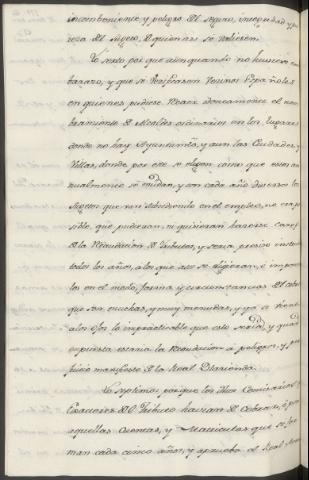 incombeniente, y peligro del seguro, integridad, y pu
reza del sugeto, de quienes se valiesen.
Lo sexto por que aun quando no huviera em
barazo, y que se hallasen vecinos Españoles
en quienes pudiese recaer el nom
bramiento de Alcaldes ordinarios en los lugares
donde no hay Ayuntamto, y aun las Ciudades y
Villas, donde por este se eligen, como que estos an
nualmente se mudan, y son cada año diversos los
sugetos que van subcediendo en el empleo, no era po
sible, que pudieran, ni quisieran hacerse cargo
de la Recaudacion de Tributos, y seria preciso instruir
todos los años, a los que asi se eligieran, é imponer
los en el modo, forma y circunstancias del cobro
que son muchas, y muy menudas, y ya se
los ojos lo impracticable que esto seria, y quan
expuesta estaria la Recaudacion á peligros, y per
juicio manifiesto de la Real Hacienda.
Lo septimo: porque los
de Tributo havian de Cobrar,
aquellas Cuentas, y Matriculas que se for
man cada cinco años, y aprueba el Real